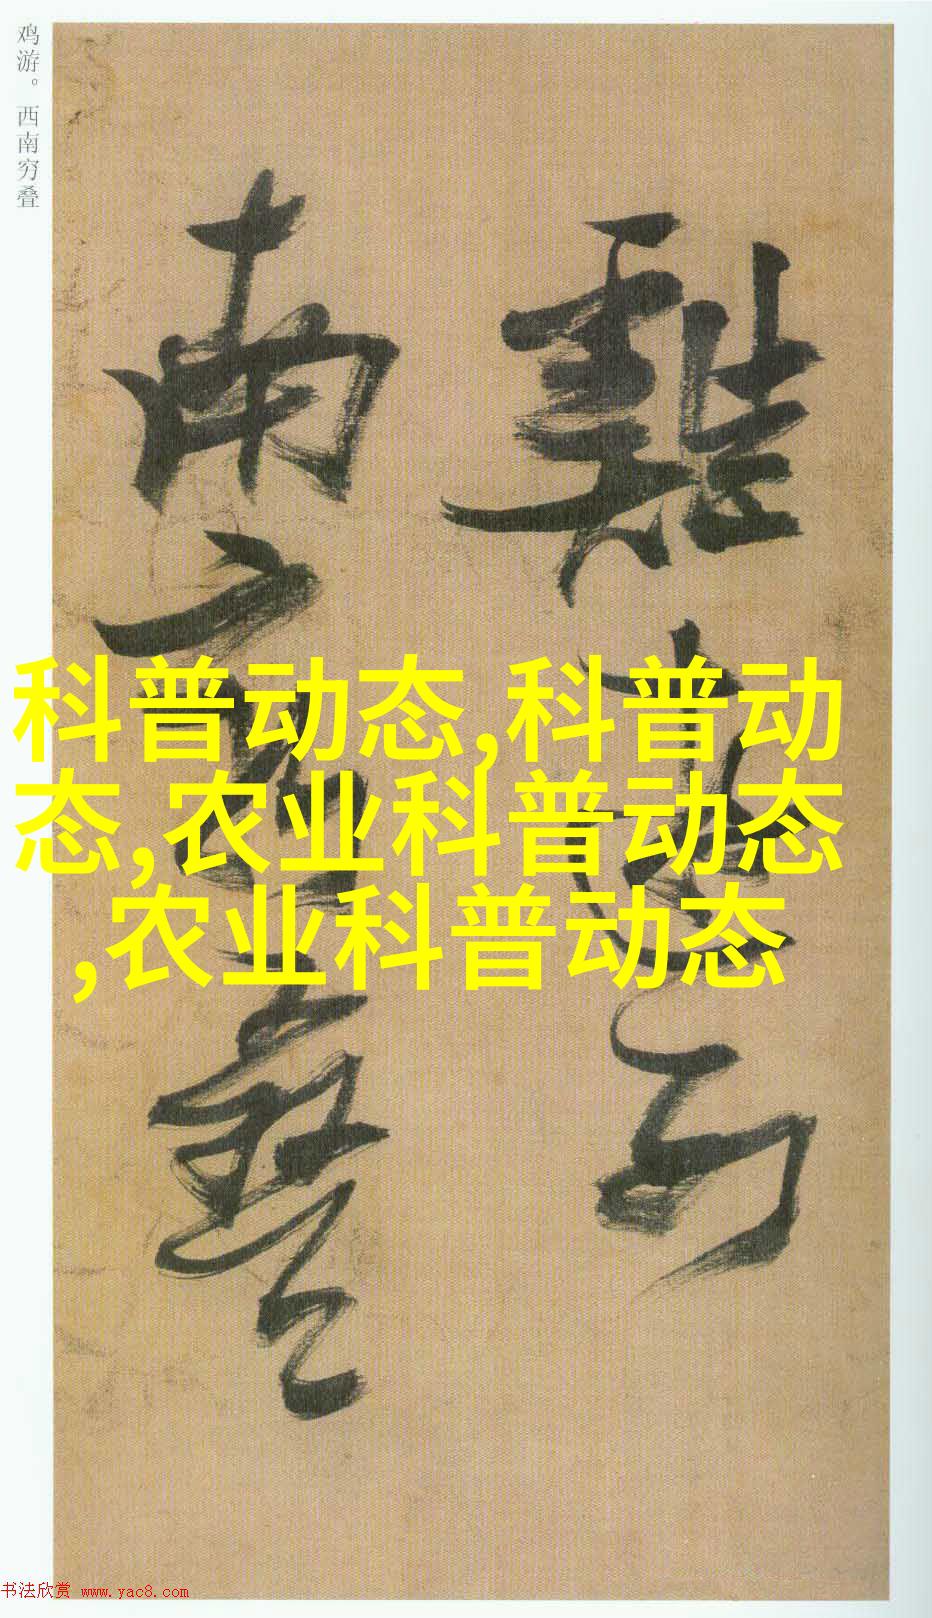 鸡游。西南穷叠
雞游西
南窮疊
科普动态,科普动
态,农业科普动态
,农业科普动态
书法欣赏 www.yac8.com